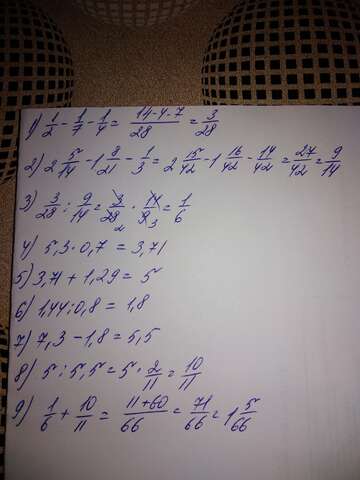 1) 1/2 - 1/7 - 1/4 = 14-4-7/28 = 3/28
2) 2 5/14 - 1 8/21 - 1/3 = 2 15/42 - 1 16/42 - 14/42 = 27/42 = 9/14
3) 3/28 : 9/14 = 3/28 2 · 14/9 3 = 1/6
4) 5,3 · 0,7 = 3,71
5) 3,71 + 1,29 = 5
6) 1,44 : 0,8 = 1,8
7) 7,3 - 1,8 = 5,5
8) 5 : 5,5 = 5 · 2/11 = 10/11
9) 1/6 + 10/11 = 11+60/66 = 71/66 = 1 5/66